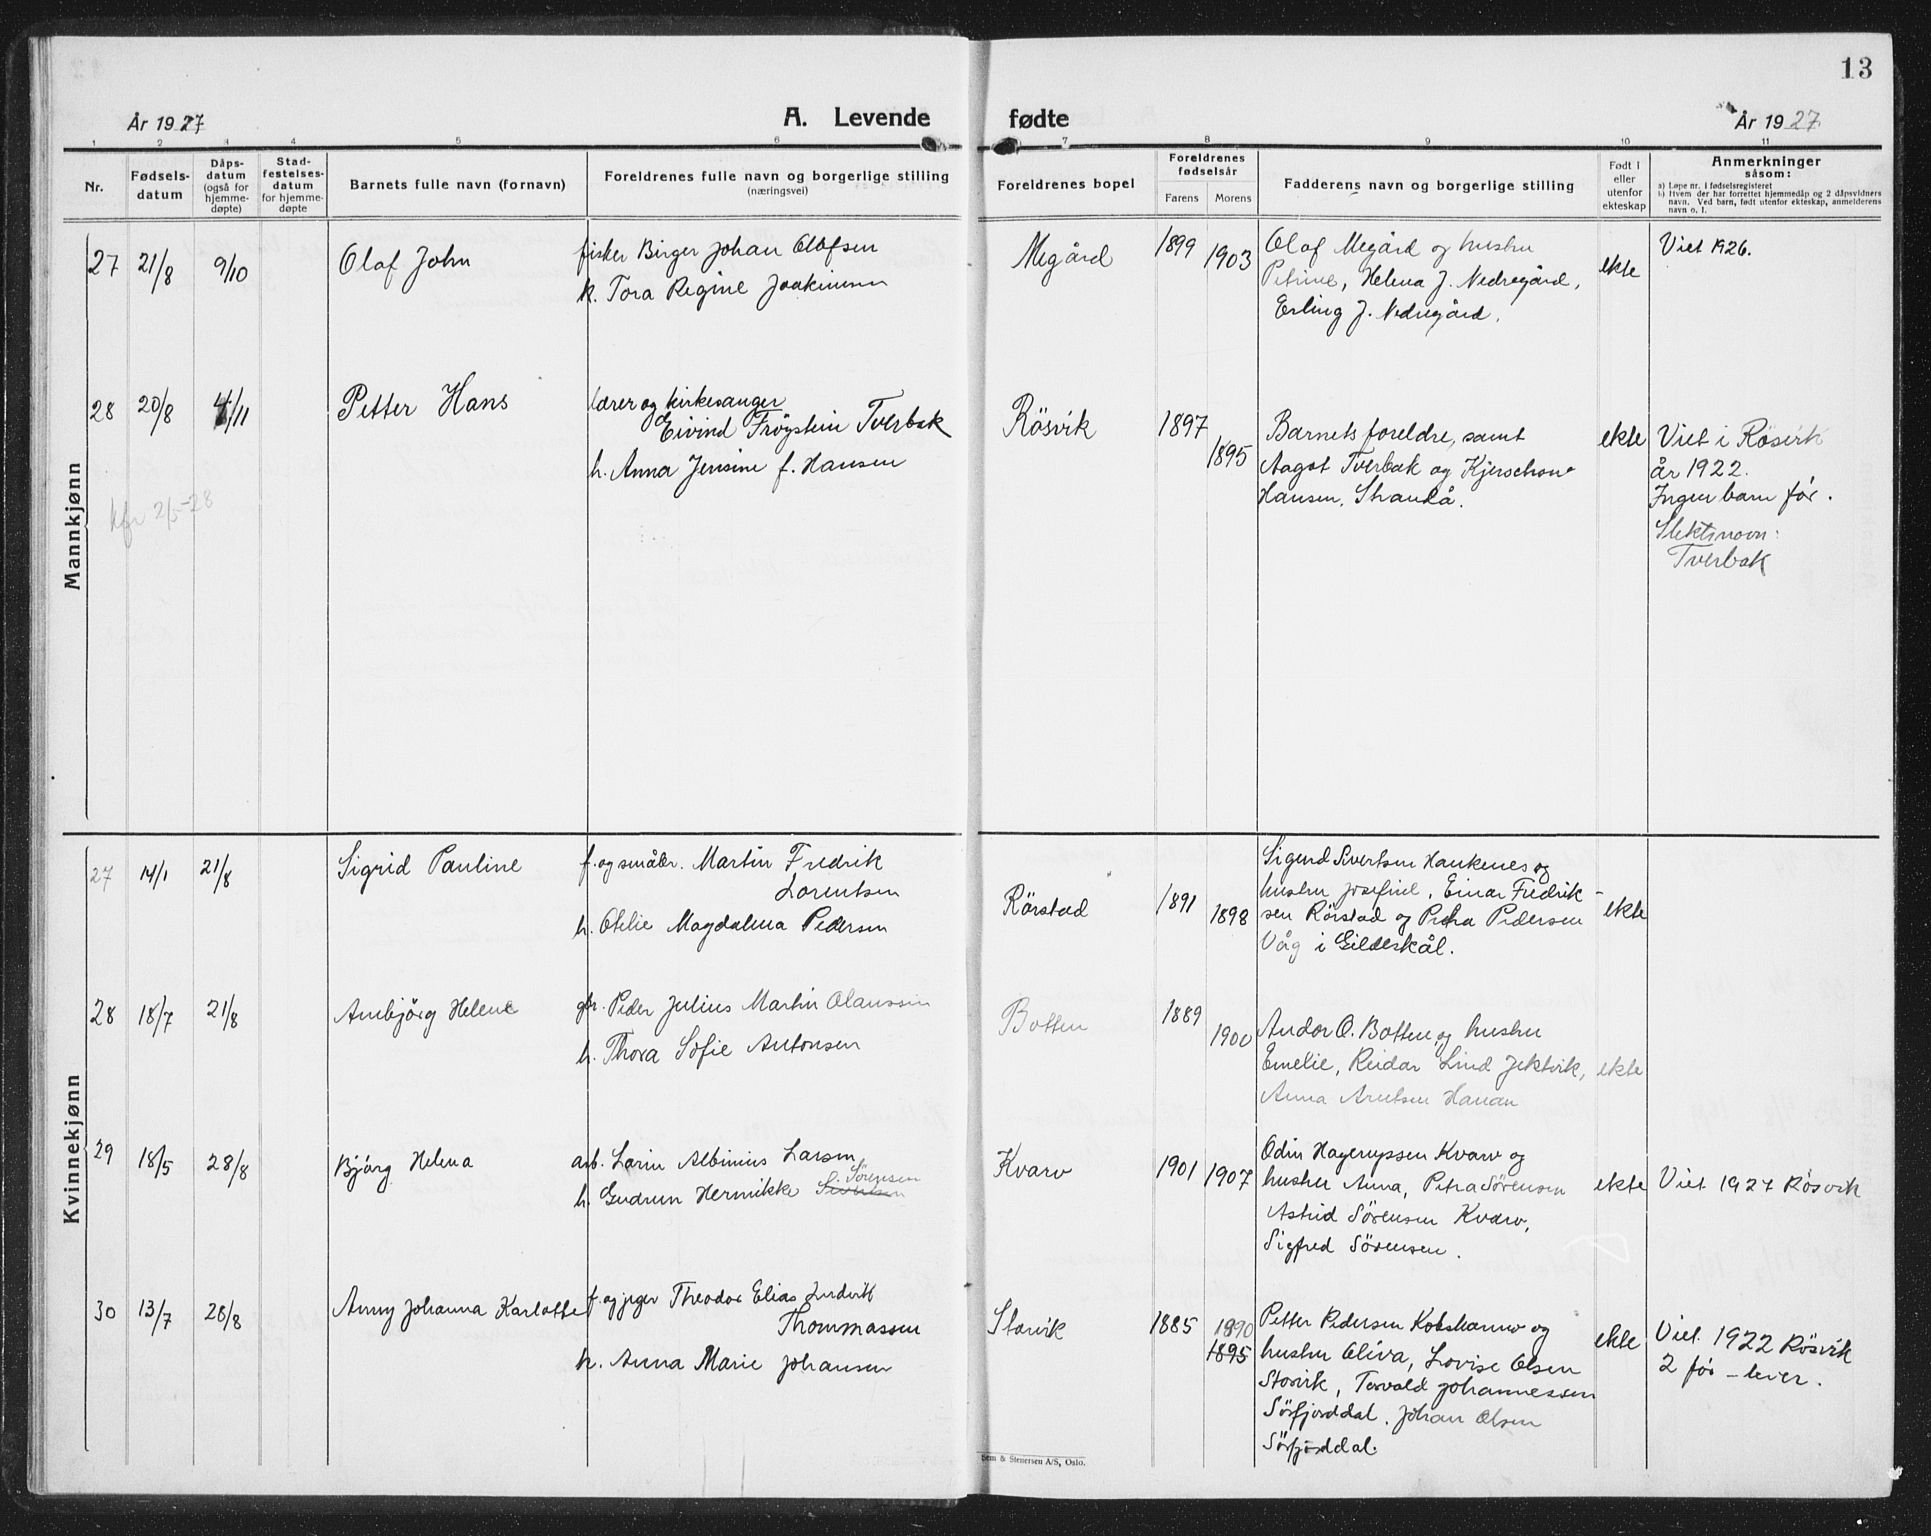 13
År 1927
A. Levende fødte
År 1927
1 2 3 4 5 6 7 8 9 10 11
Nr.
Fødsels-
datum
Dåps-
datum
(også for
hjemme-
døpte)
Stad-
festelses-
datum
for hjemme-
døpte
Barnets fulle navn (fornavn)
Foreldrenes fulle navn og borgerlige stilling
(næringsvei)
Foreldrenes bopel
Foreldrenes
fødselsår
Farens Morens
Fadderens navn og borgerlige stilling
Født i
eller
utenfor
ekteskap
Anmerkninger
såsom:
a) Løpe nr. i fødselsregisteret
b) Hvem der har forrettet hjemmedåp og 2 dåpsvidners
navn. Ved barn, født utenfor ekteskap, anmelderens
navn o. l.
Mannkjønn
27 21/8 9/10
Olaf John
fisker Birger Johan Olofsen
h. Tora Regine Joakimsen
Megård
1899
1903
Olaf Megård og hustru
Petrine, Helena J. Nedregård,
Erling J. Nedregård.
ekte
Viet 1926.
28 20/8 /11
Petter Hans
lærer og kirkesanger
Eivind Frøystein Tverbak
h. Anna Jensine f. Hansen
Rösvik
1897
1895
Barnets foreldre, samt
Aagot Tverbak og Kjerschow
Hansen, Strandå.
ekte
Viet i Røsvik
år 1922.
Ingen barn før.
Slektsnavn:
Tverbak
kfr 2/5-28
Kvinnekjønn
27 14/1 21/8
Sigrid Pauline
f. og småbr. Martin Fredrik
Lorentsen
h. Otelie Magdalena Pedersen
Rörstad
1891
1898
Sigurd Sivertsen Haukenes og
hustru Josefine, Einar Fredrik-
sen Rörstad og Petra Pedersen
Våg i Gildeskål.
ekte
28 18/7 21/8
Annbjörg Helene
gbr. Peder Julius Martin Olaussen
h. Thora Sofie Antonsen
Botten
1889
1900
Andor O. Botten og hustru
Emelie, Reidar Lind Jektvik,
Anna Arntsen
ekte
29 18/5 28/8
Bjórg Helena
arb. Lorin Albinius Larsen
h. Gudrun Hermikke Sörensen
Kvarv
1901
1907
Odin Hagerupsen Kvarv og
hustru Anna, Petra Sørensen
Astrid Sørensen Kvarv,
Sigfred Sørensen.
ekte
Viet 1927 Røsvik
30 13/7 28/8
Anny Johanna Karlotte
f. og jeger Theodor Elias Ludvik
Thommassen
h. Anna Marie Johansen
Storvik
1885
1890
1895
Petter Pedersen Kobskarv og
hustru Oliva, Lovise Olsen
Storvik, Torvald Johannessen
Sörfjorddal, Johan Olsen
Sörfjorddal.
ekte
Viet 1922 Røsvik
2 før – lever.
Sem & Stenersen A/S, Oslo.